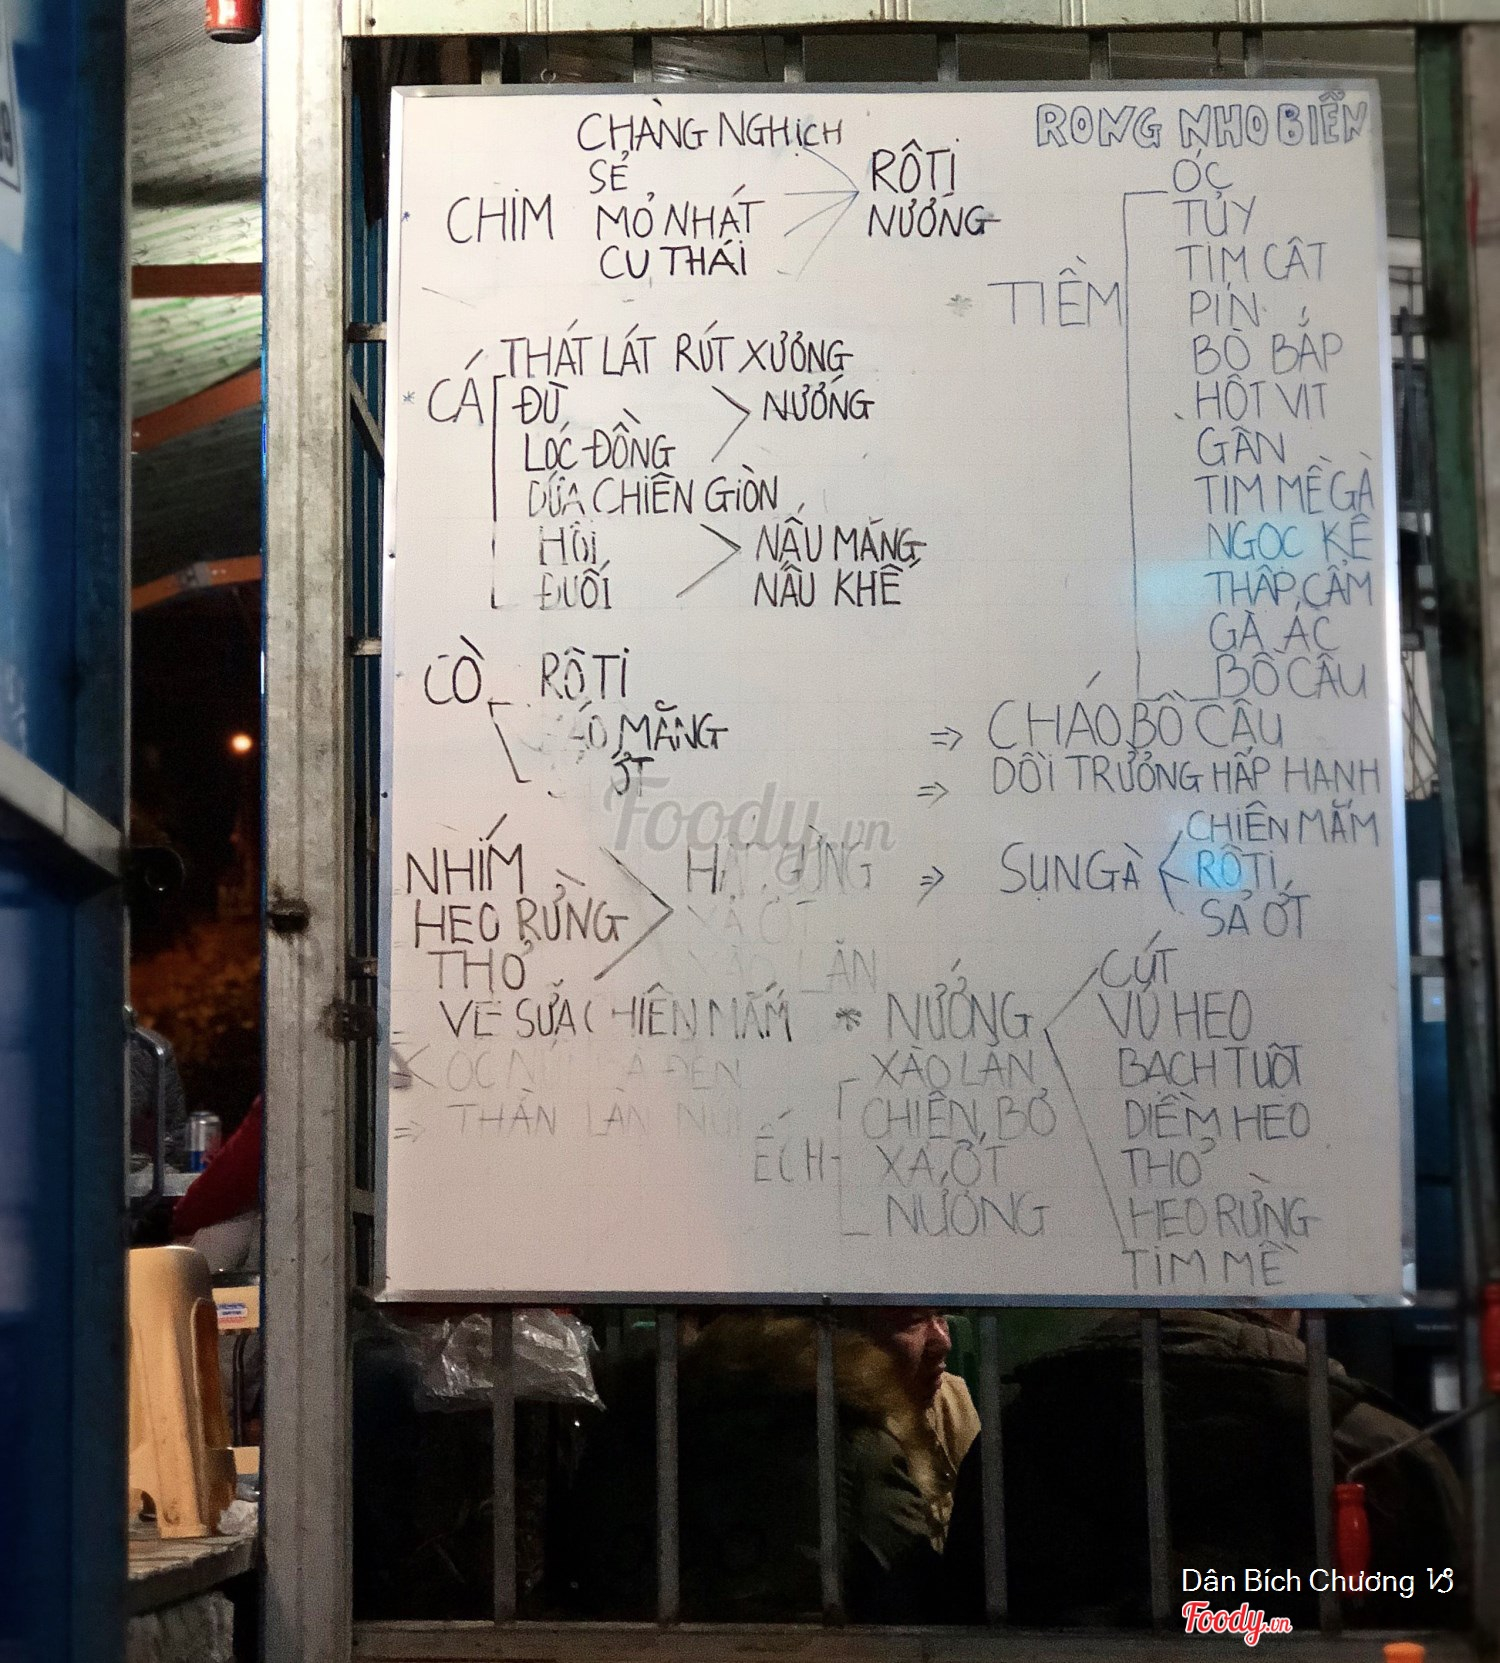 CHÀNG NGHỊCH
SẺ
CHIM MỎ NHÁT
CU THÁI
RÔTI
NƯỚNG
CÁ
THÁT LÁT RÚT XƯƠNG
ĐÙ
LÓC ĐỒNG
NƯỚNG
DỨA CHIÊN GIÒN
HỒI
ĐUỐI
NẤU MĂNG
NẤU KHẾ
CÒ RÔTI
MĂNG
ỚT
NHÍM
HEO RỪNG
THỎ
XẢ ỚT
LĂN
VÉ SỮA CHIÊN MẮM
ĐEN
THẰN LẰN NÚI
RONG NHO BIỂN
TIỀM
ÓC
TỦY
TIM CẬT
PÍN
BÒ BẮP
HỘT VỊT
GÂN
TIM MỀ GÀ
NGỌC KÊ
THẬP CẨM
GÀ ÁC
BỒ CÂU
⇒ CHÁO BỒ CÂU
⇒ DỒI TRƯỜNG HẤP HÀNH
⇒ SỤN GÀ
CHIÊN MẮM
RÔTI
SẢ ỚT
* NƯỚNG
CÚT
VÚ HEO
BẠCH TUỘT
DIỀM HEO
THỎ
HEO RỪNG
TIM MỀ
ẾCH
XÀO LĂN
CHIÊN BƠ
XẢ ỚT
NƯỚNG
Foody.vn
Dân Bích Chương
Foody.vn